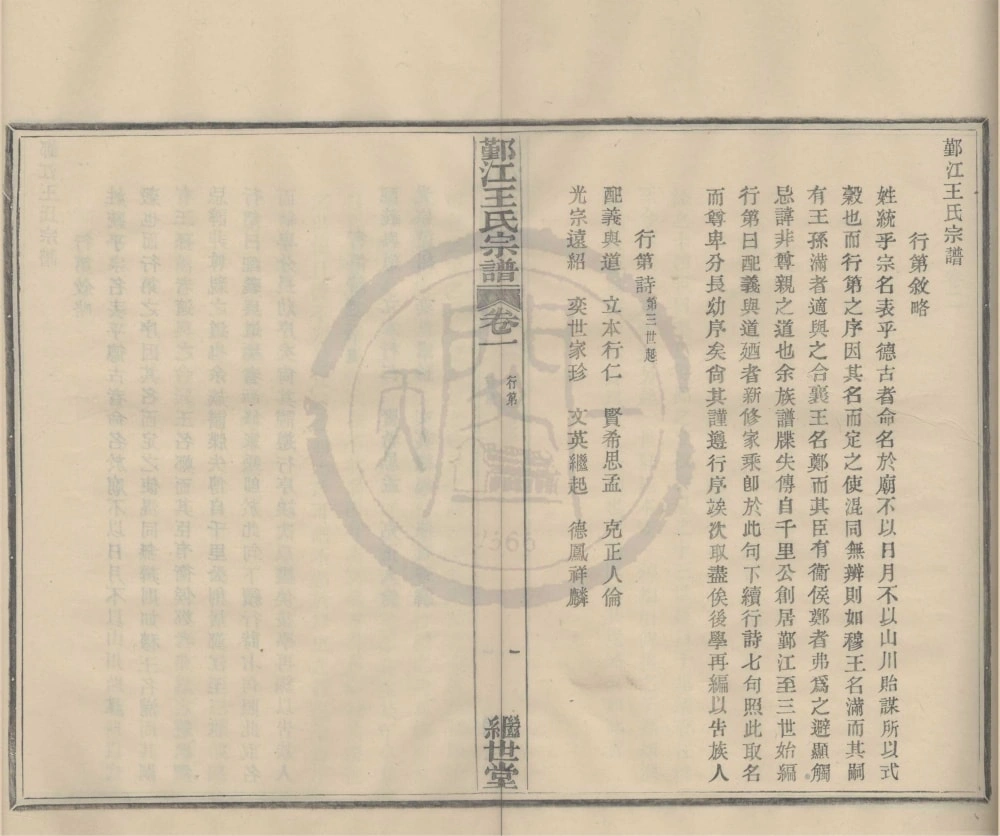 鄞江王氏宗譜
行第敘略
姓統乎宗名表乎德古者命名於廟不以日月不以山川貽謀所以式
穀也而行第之序因其名而定之使混同無辨則如穆王名滿而其嗣
有王孫滿者適與之合襄王名鄭而其臣有衞侯鄭者弗爲之避顯觸
忌諱非尊親之道也余族譜牒失傳自千里公創居鄞江至三世始編
行第曰配義與道廼者新修家乘卽於此句下續行詩七句照此取名
而尊卑分長幼序矣尙其謹遵行序挨次取盡俟後學再編以吿族人
行第詩第三世起
配義與道 立本行仁 賢希思孟 克正人倫
光宗遠紹 奕世家珍 文英繼起 德鳳祥麟
鄞江王氏宗譜 卷一 行第 一 繼世堂
2566